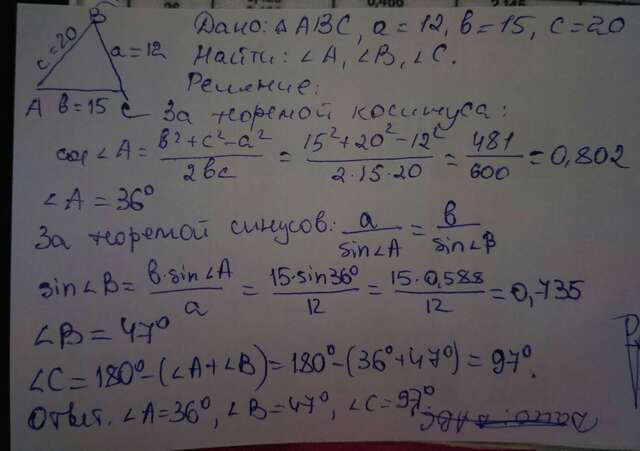 B
c=20
a=12
A b=15 C
Дано: △ABC, a=12, b=15, c=20
Найти: ∠A, ∠B, ∠C.
Решение:
За теоремой косинуса:
cos∠A = (b²+c²-a²)/(2bc) = (15²+20²-12²)/(2·15·20) = 481/600 = 0,802
∠A = 36°
За теоремой синусов: a/sin∠A = b/sin∠B
sin∠B = (b·sin∠A)/a = (15·sin36°)/12 = (15·0,588)/12 = 0,735
∠B = 47°
∠C = 180°-(∠A+∠B) = 180°-(36°+47°) = 97°.
Ответ. ∠A=36°, ∠B=47°, ∠C=97°.